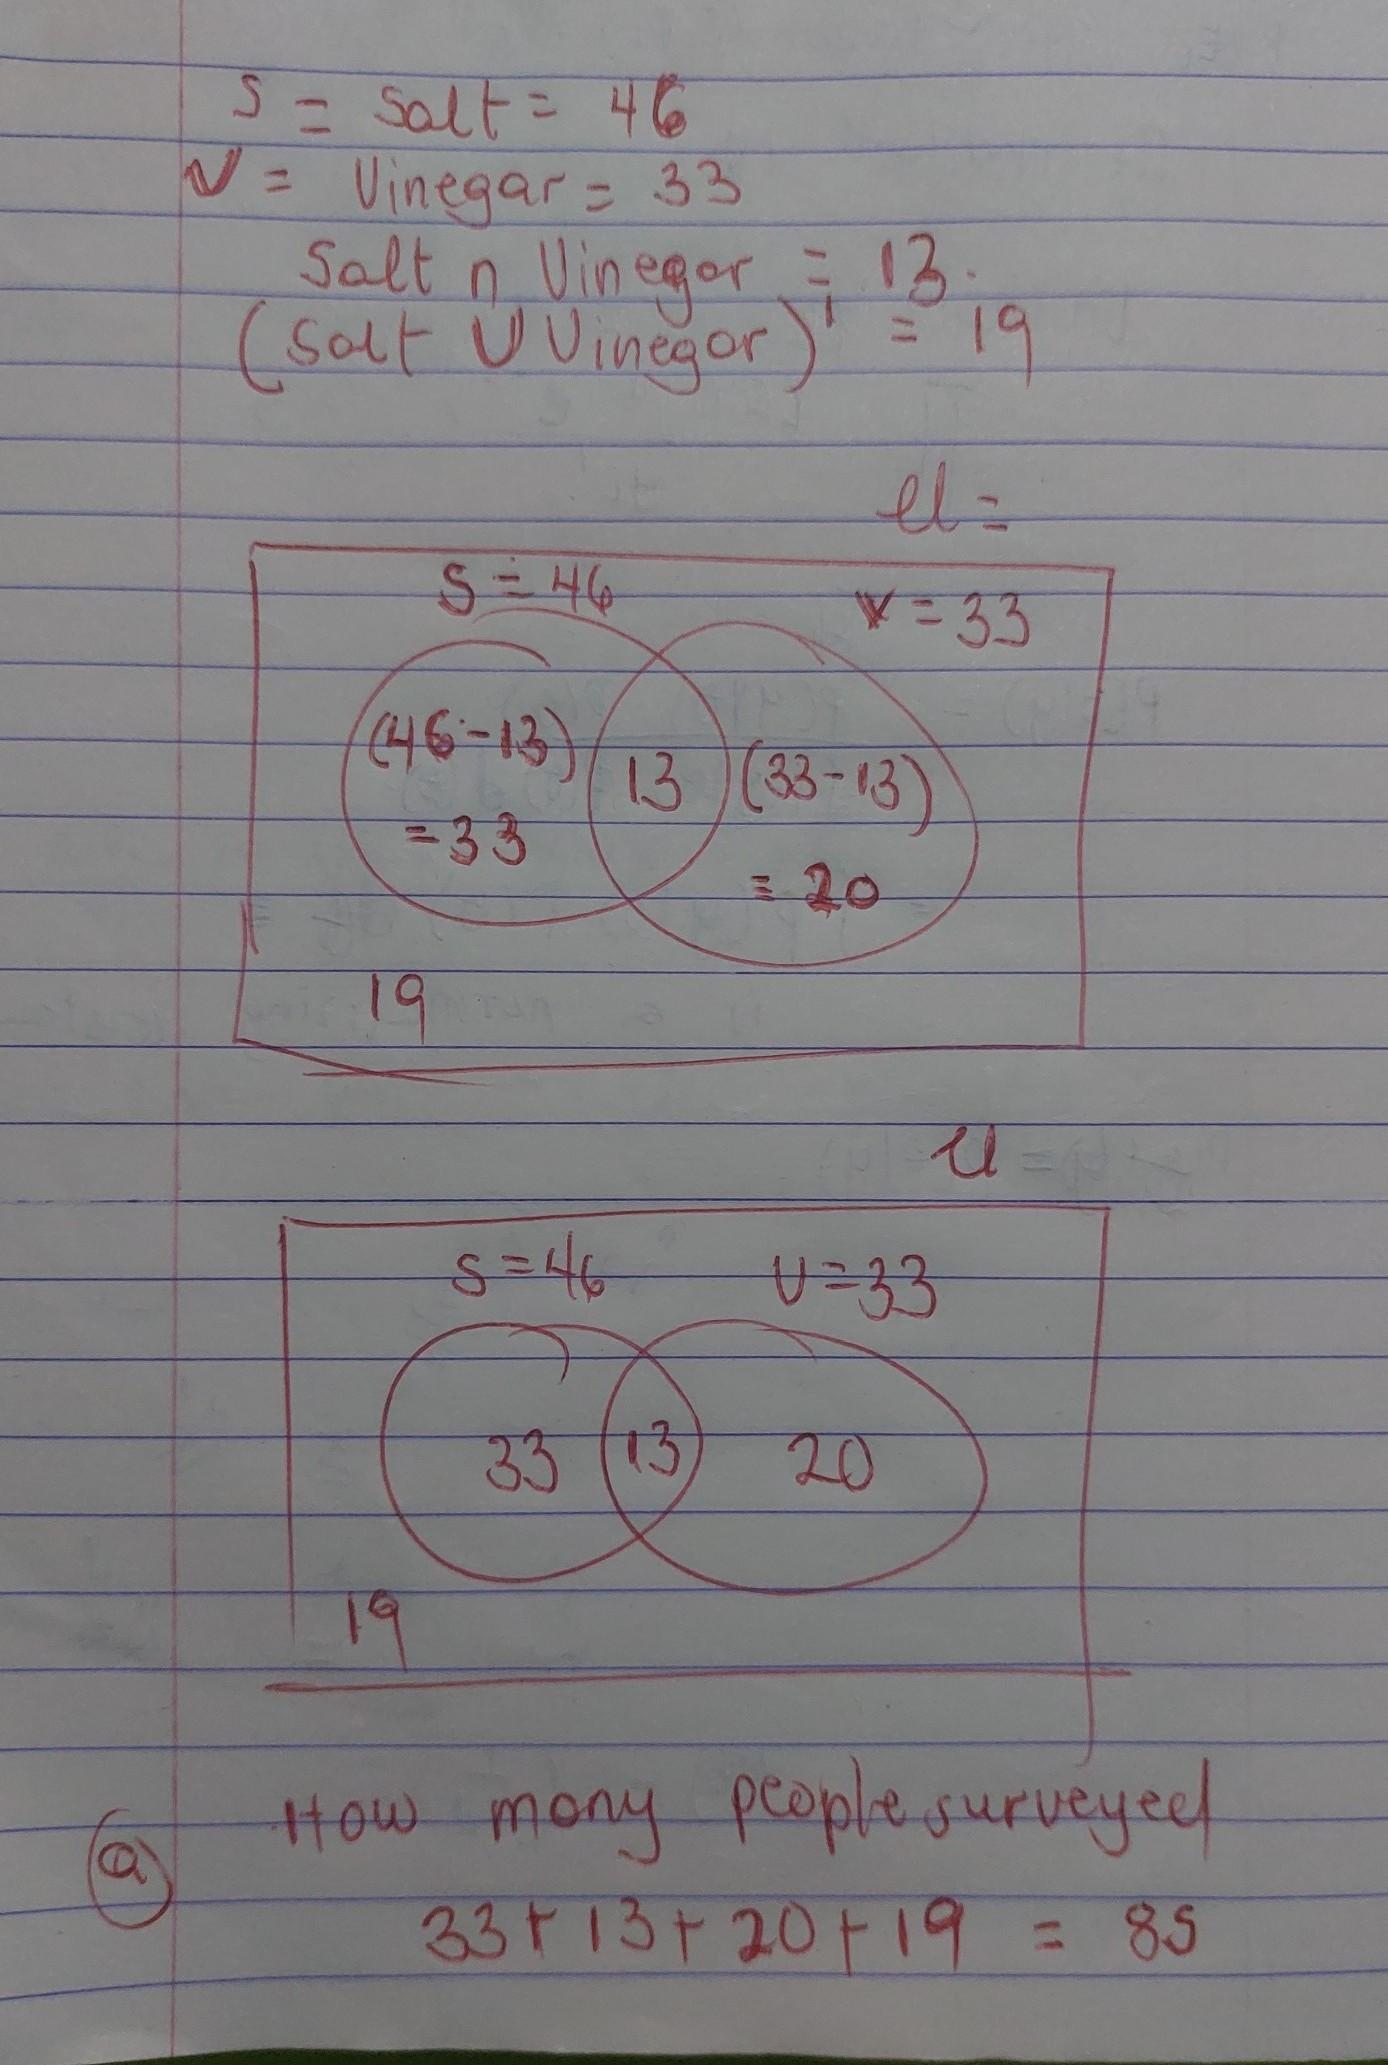 S = Salt = 46
V = Vinegar = 33
Salt n Vinegar = 13.
(Salt U Vinegar)' = 19
U =
S = 46
V = 33
(46-13)
13
(33-13)
= 33
= 20
19
U
S = 46
V = 33
33
13
20
19
a
How many people surveyed
33 + 13 + 20 + 19 = 85